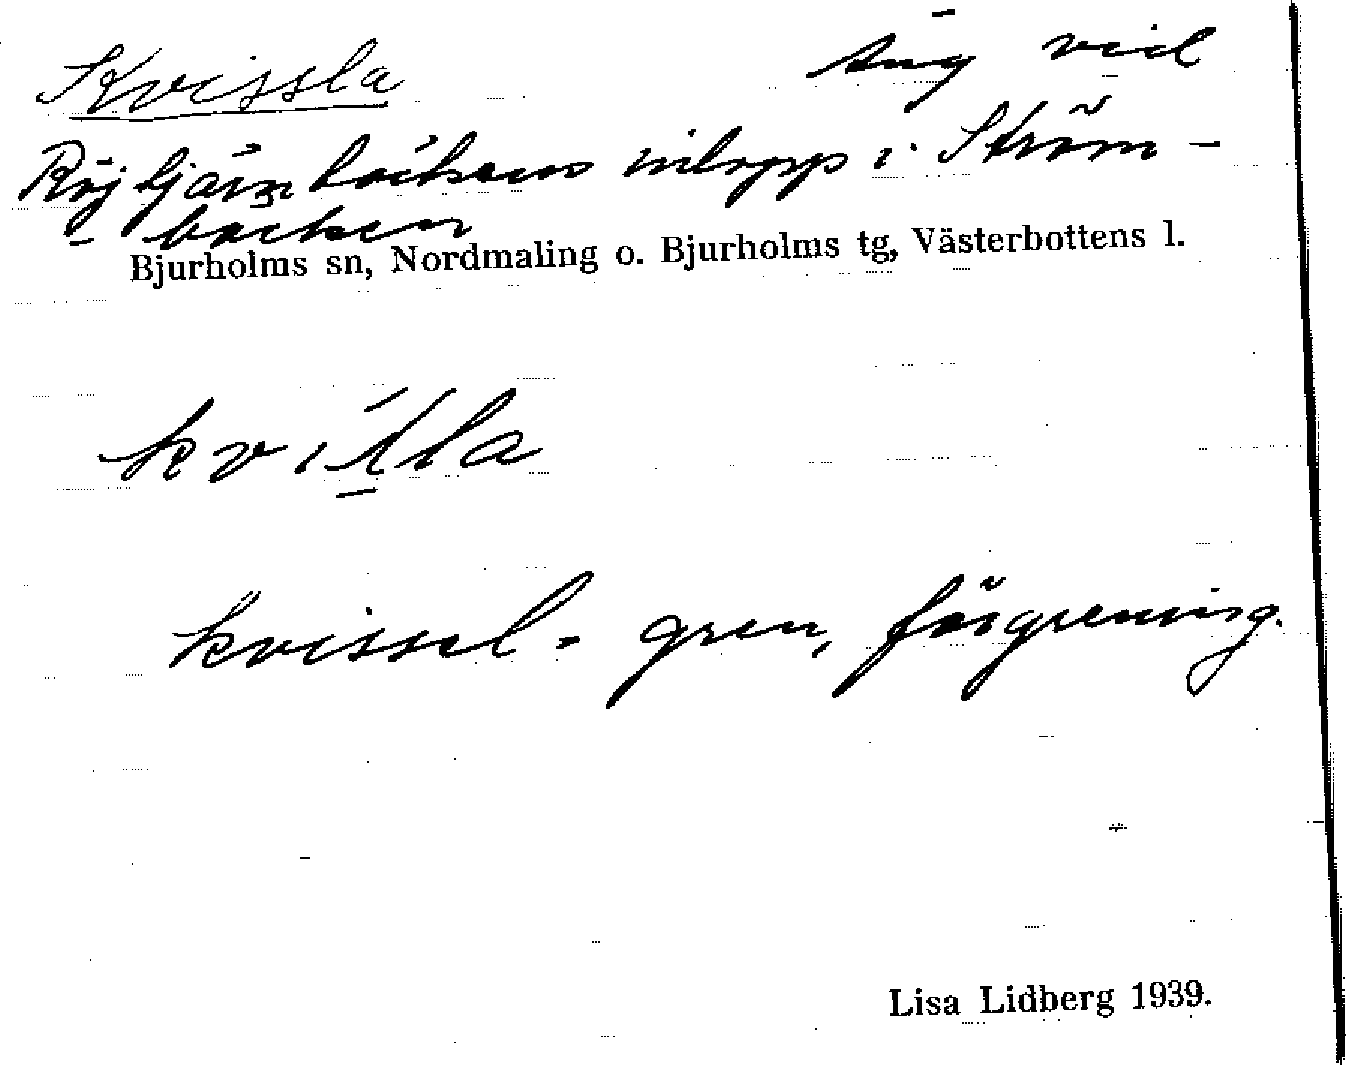 Kvissla Äng vid
Röjtjärnbäckens inlopp i Ström-
backen
Bjurholms sn, Nordmaling o. Bjurholms tg, Västerbottens l.
kvissel - gren, förgrening.
Lisa Lidberg 1939.